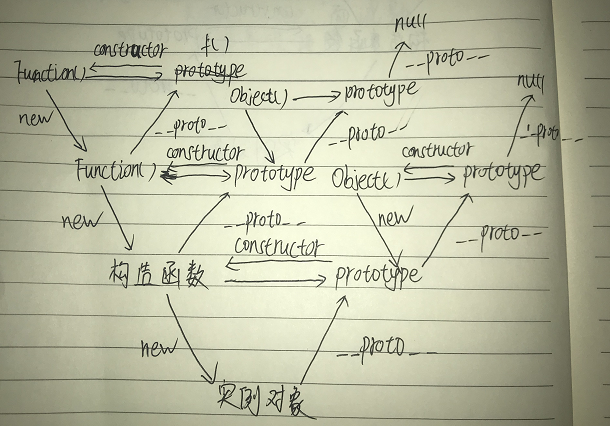 null
constructor f()
Function() prototype __proto__ null
Object() prototype
new __proto__ __proto__ __proto__
constructor constructor
Function() prototype Object() prototype
new __proto__ new __proto__
constructor
构造函数 prototype
new __proto__
实例对象